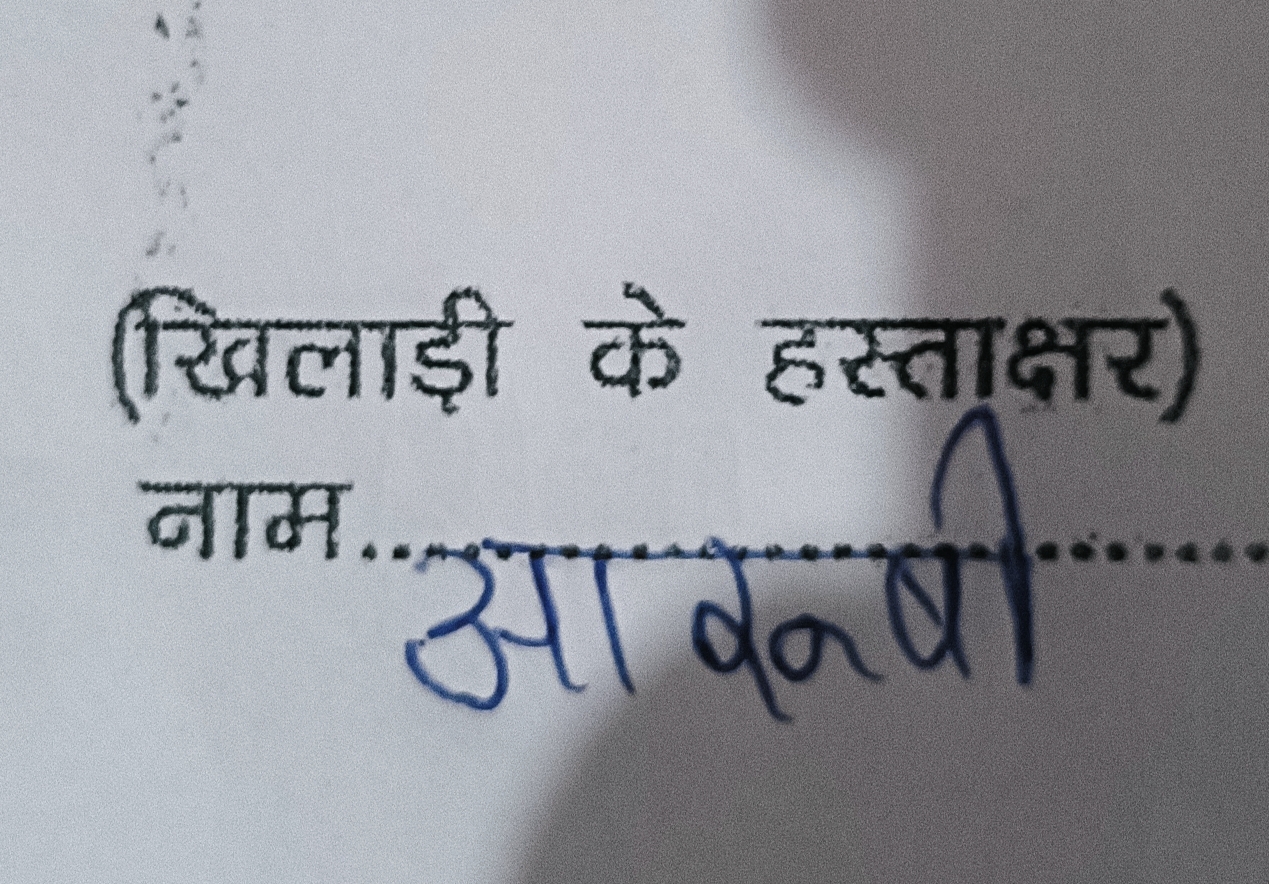 (खिलाड़ी के हस्ताक्षर)
नाम.......... आकषी